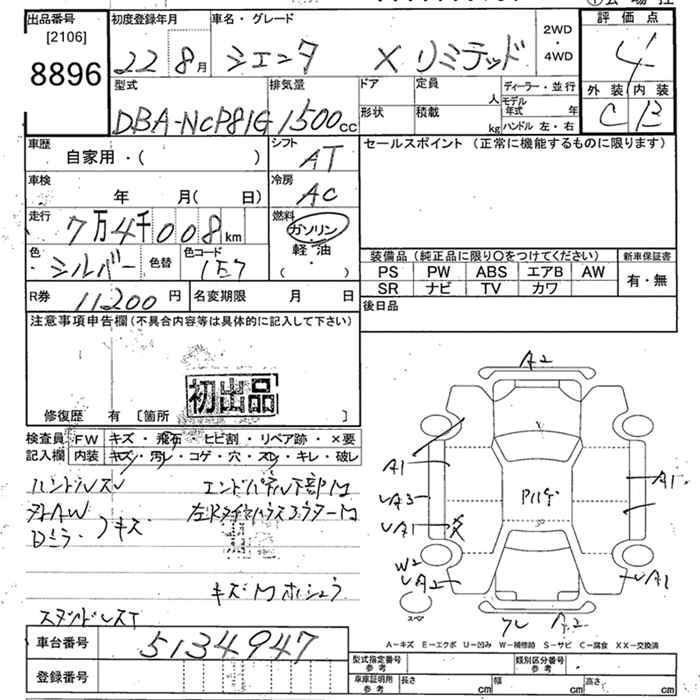 出品番号
[2106]
8896
初度登録年月
22 8月
車名・グレード
シエンタ X リミテッド
2WD
・
4WD
評価点
4
外装 内装
C B
型式
DBA-NCP81G
排気量
1500cc
ドア
定員
人
形状
積載
kg
ディーラー・並行
モデル年式 年
ハンドル 左・右
車歴
自家用・( )
シフト
AT
セールスポイント (正常に機能するものに限ります)
車検
年 月( 日)
冷房
AC
走行
7万4千008km
燃料
ガソリン
軽・油
( )
色
シルバー
色替
色コード
1E7
装備品 (純正品に限り〇をつけてください)
新車保証書
PS PW ABS エアB AW
SR ナビ TV カワ
有・無
R券 11200円
名変期限 月 日
後日品
注意事項申告欄 (不具合内容等は具体的に記入して下さい)
初出品
修復歴 有 [箇所 ]
検査員記入欄
FW キズ・飛石・ヒビ割・リペア跡・×要
内装 キズ・汚レ・コゲ・穴・スレ・キレ・破レ
ハンドルスレ
エンドパネル下部M
キズ
キズM
A2
A1
A1
UA3
UA1
W2
UA2
UA1
スペア
A2
A-キズ E-エクボ U-凹み W-補修跡 S-サビ C-腐食 XX-交換済
車台番号 5134947
登録番号
型式指定番号
参考
類別区分番号
参考
車庫証明用
参考
長さ cm
幅 cm
高さ cm